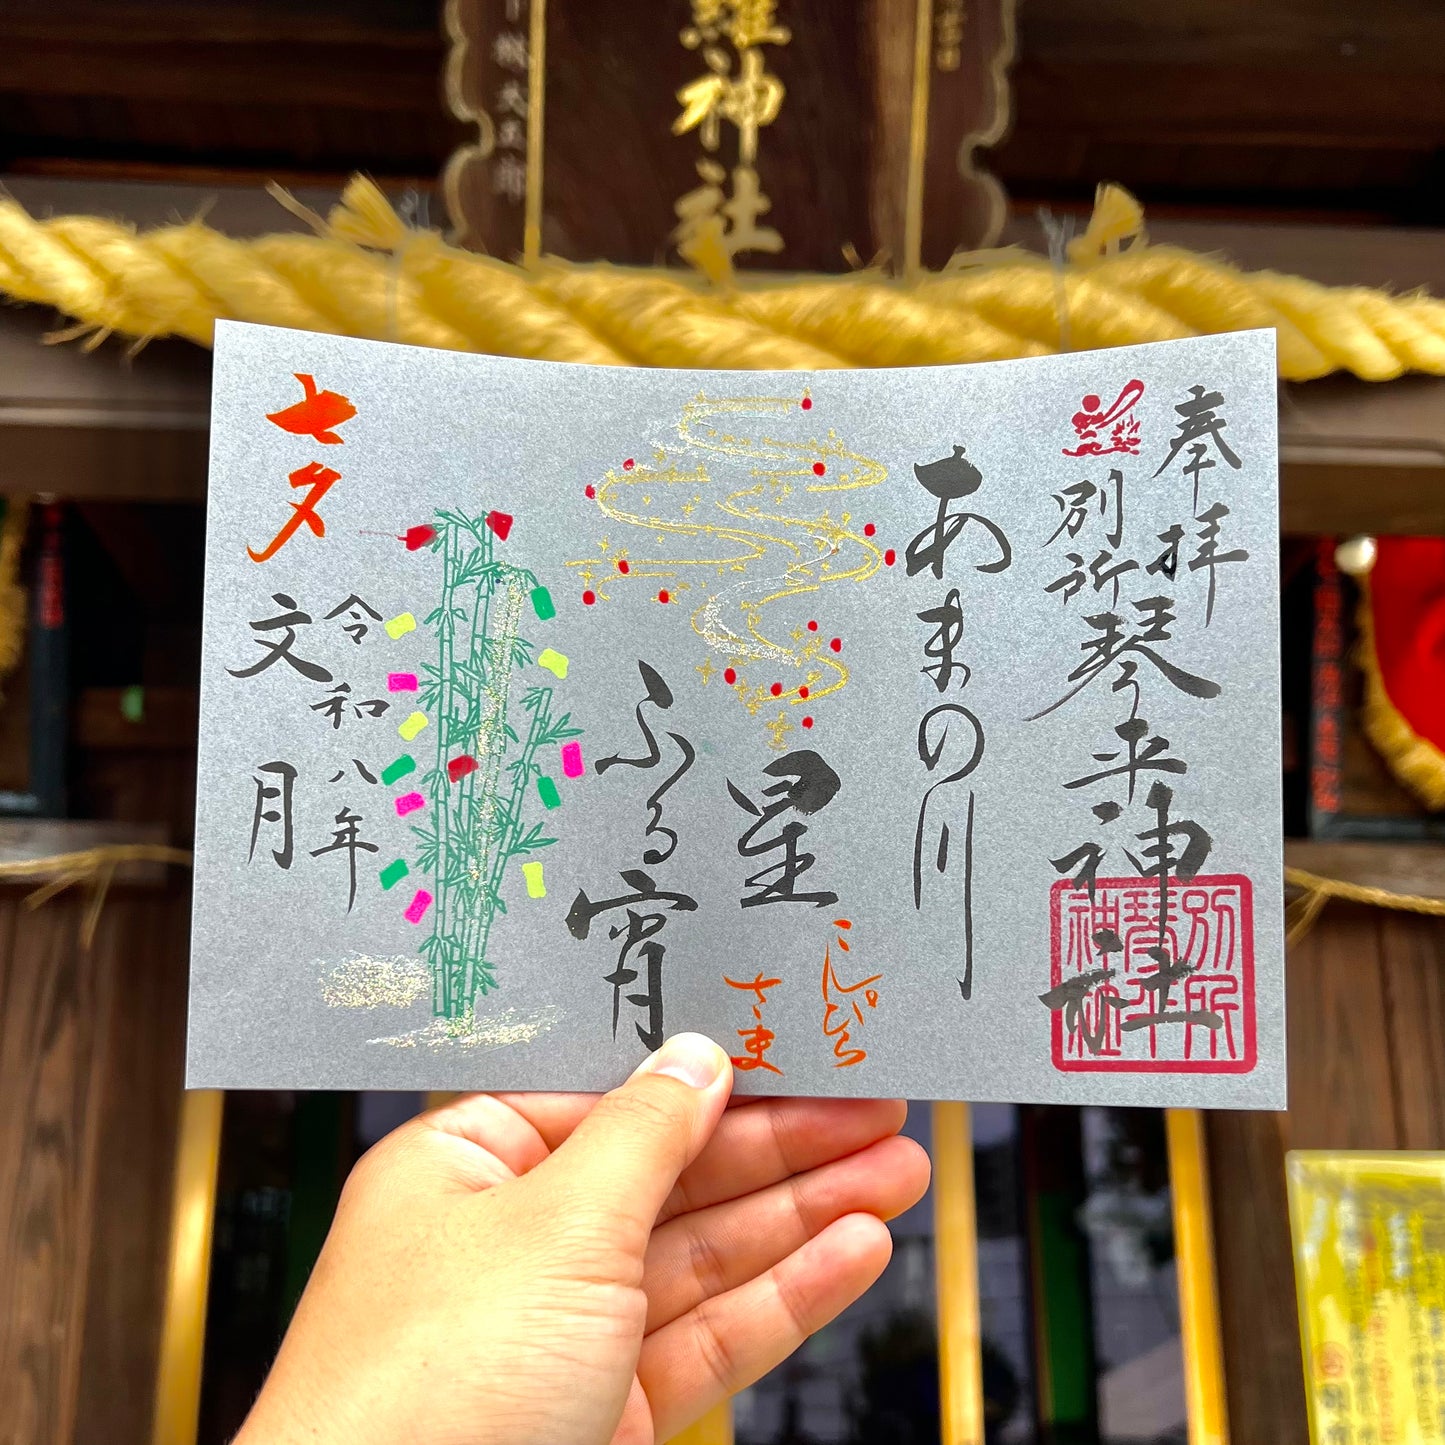 奉拝
別所琴平神社
別所
琴平
神社
あまの川
星
ふる宵
こんぴら
さま
七夕
令和八年
文月
羅神社